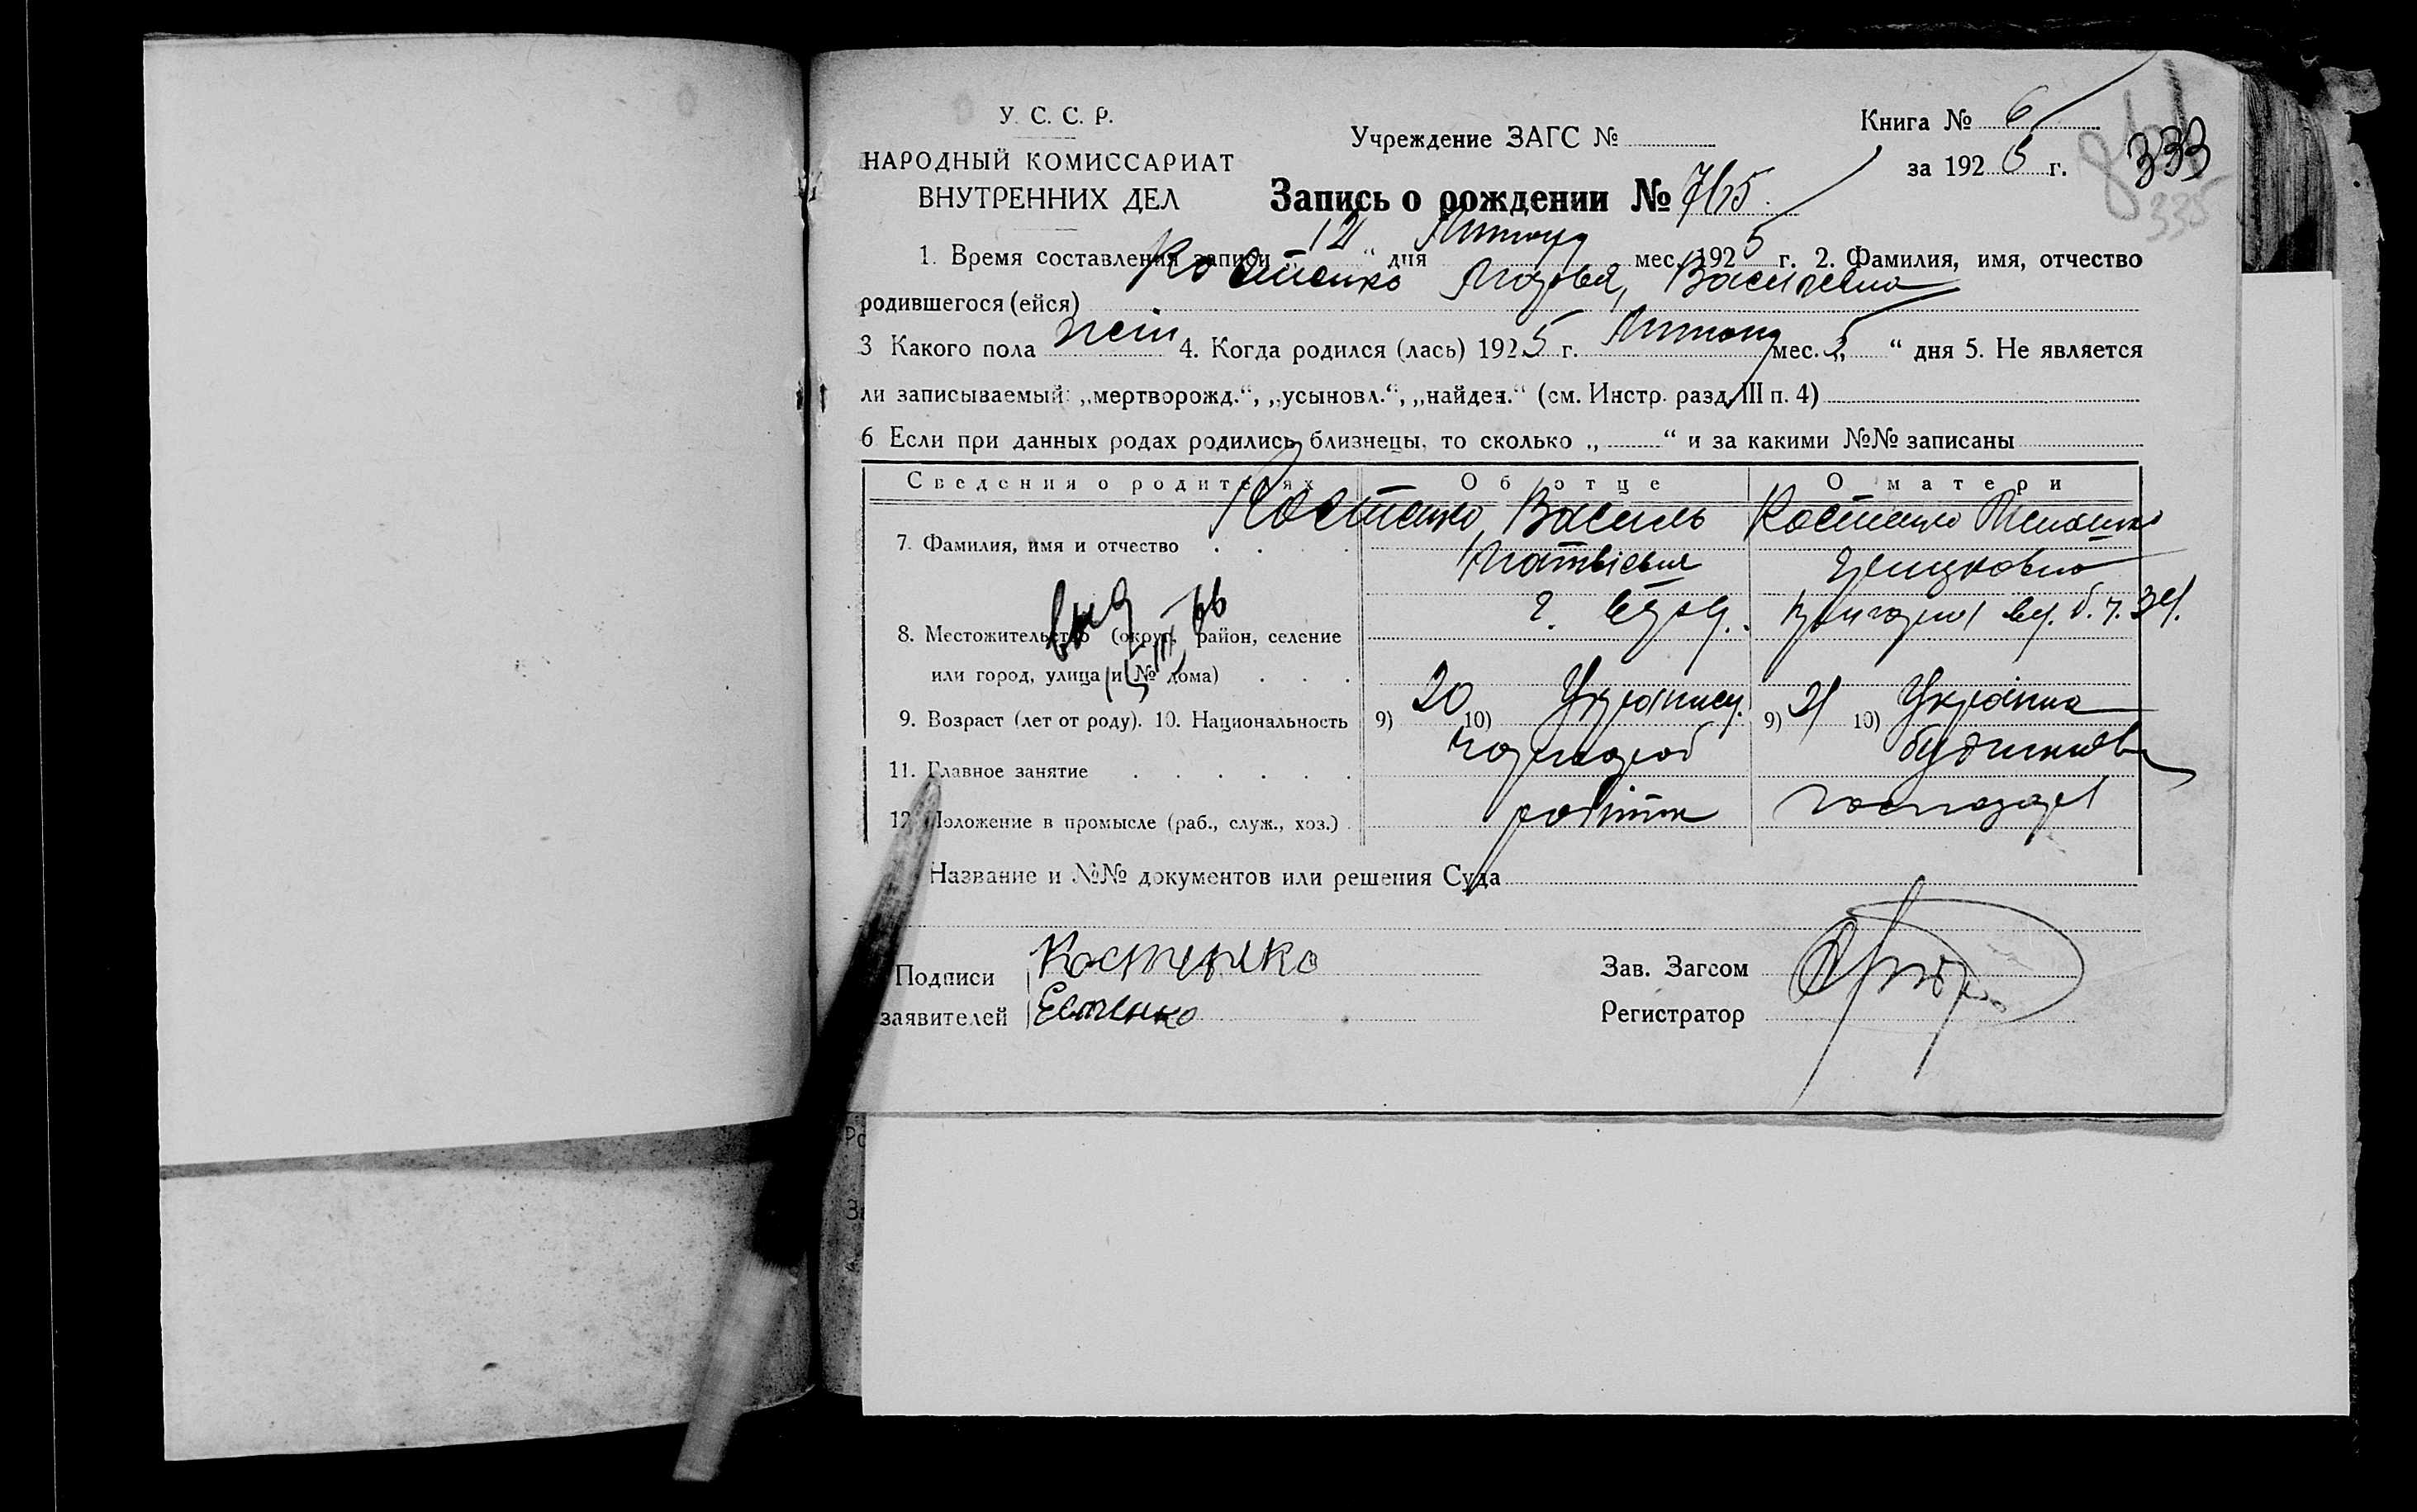 У. С. С. Р.
НАРОДНЫЙ КОМИССАРИАТ
ВНУТРЕННИХ ДЕЛ
Учреждение ЗАГС №
Книга № 6
за 1925 г.
333
335
Запись о рождении № 765
1. Время составления записи „12“ дня Лютого мес. 1925 г. 2. Фамилия, имя, отчество
родившегося (ейся) Костенко Василевна
3 Какого пола жін 4. Когда родился (лась) 1925 г. Лютого мес. „5“ дня 5. Не является
ли записываемый: „мертворожд.“, „усыновл.“, „найден.“ (см. Инстр. разд. III п. 4)
6 Если при данных родах родились близнецы, то сколько „ “ и за какими №№ записаны
Сведения о родителях Об отце О матери
7. Фамилия, имя и отчество Костенко Василь Костенко
Матвієвич
8. Местожительство (округ, район, селение
или город, улица и № дома)
9. Возраст (лет от роду). 10. Национальность 9) 20 10) Украинец 9) 21 10) Українка
11. Главное занятие чорнороб
12. Положение в промысле (раб., служ., хоз.) робітн господар
Название и №№ документов или решения Суда
Подписи Костенко
заявителей
Зав. Загсом
Регистратор